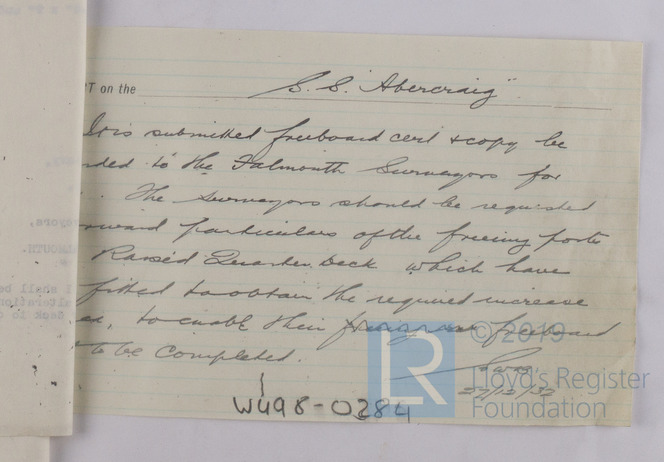 RT on the S.S. "Abercraig"
It is submitted freeboard cert & copy be
rded to the Falmouth Surveyors for
The Surveyors should be requested
rward particulars of the freeing ports
Raised Quarter Deck which have
fitted to obtain the required increase
to enable their freeboard
to be completed.
27/12/32
W498-0284
© 2019
LR
Lloyd's Register
Foundation
yors,
MOUTH.
I shall be
lteration
deck is